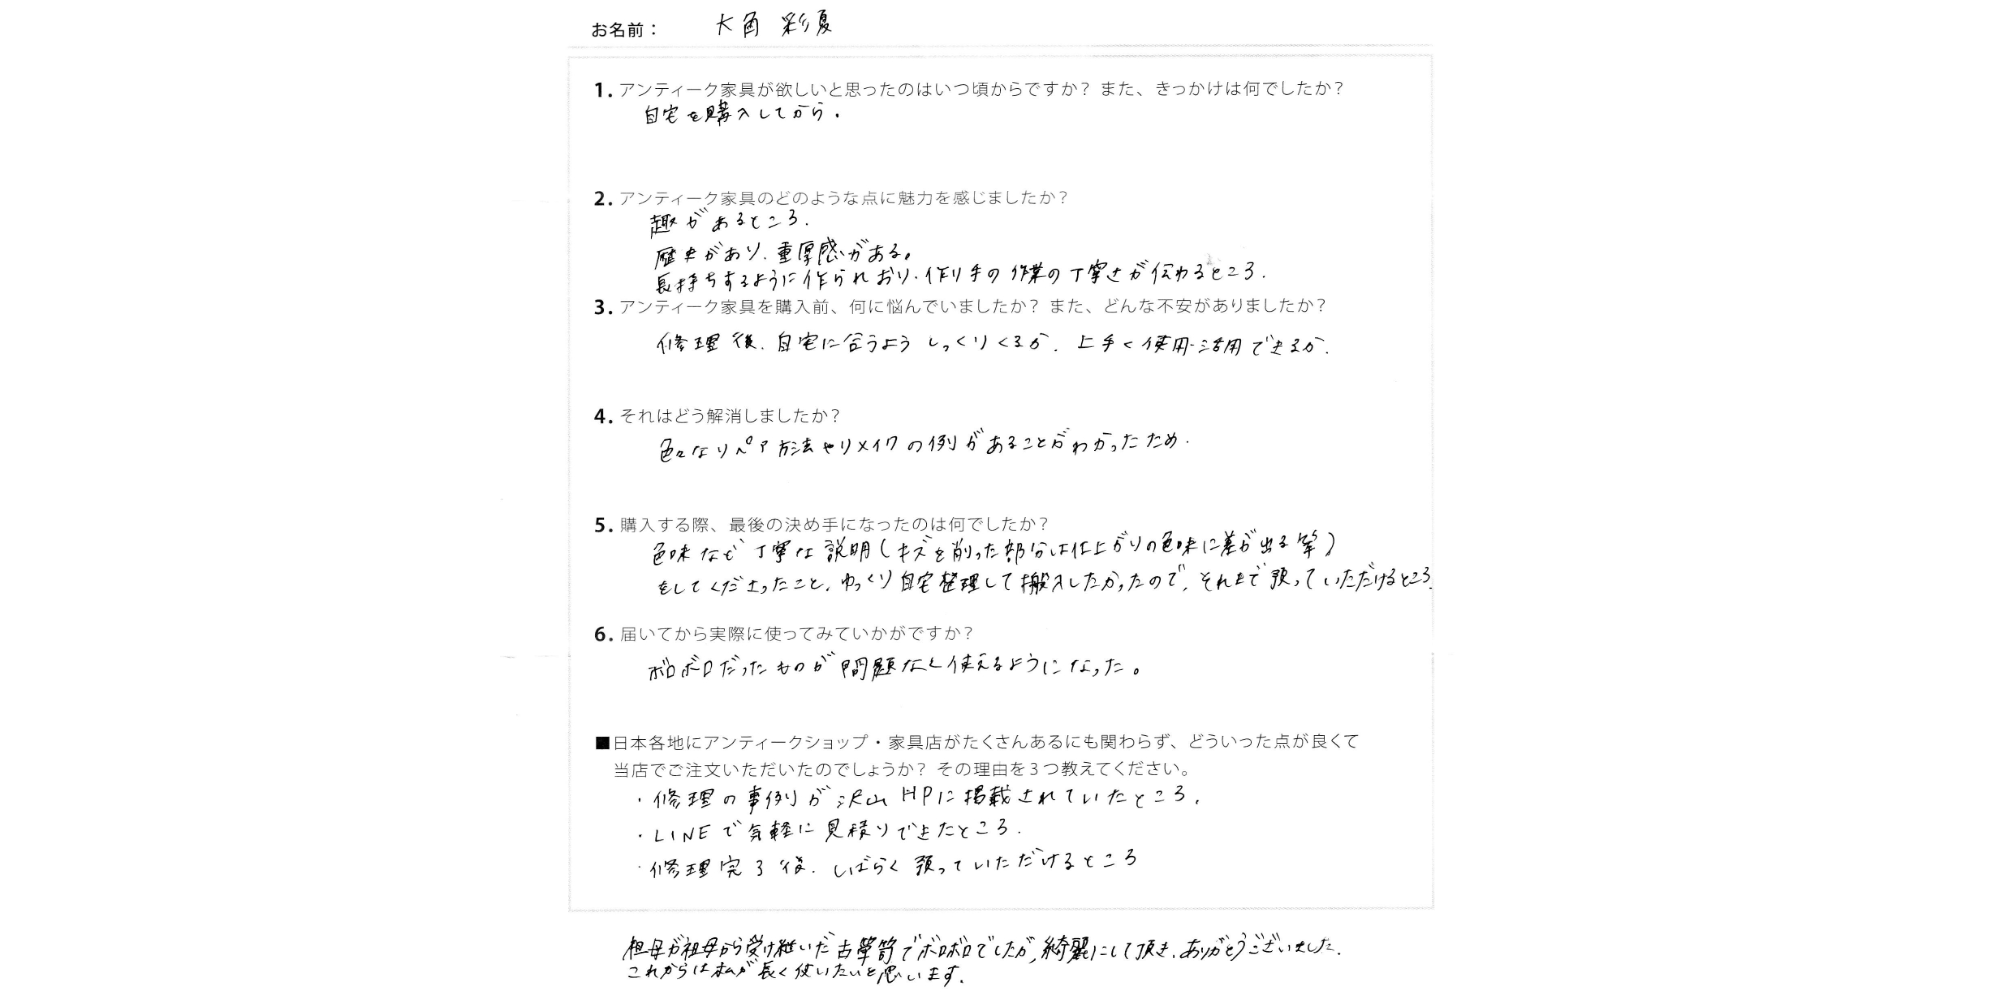 お名前： 大角 彩夏
1. アンティーク家具が欲しいと思ったのはいつ頃からですか？ また、きっかけは何でしたか？
自宅を購入してから。
2. アンティーク家具のどのような点に魅力を感じましたか？
趣があるところ.
歴史があり、重厚感がある。
長持ちするように作られおり、作り手の作業の丁寧さが伝わるところ.
3. アンティーク家具を購入前、何に悩んでいましたか？ また、どんな不安がありましたか？
修理後、自宅に合うようしっくりくるか、上手く使用・活用できるか.
4. それはどう解消しましたか？
色々なリペア方法やリメイクの例があることがわかったため.
5. 購入する際、最後の決め手になったのは何でしたか？
色味など丁寧な説明(キズを削った部分は仕上がりの色味に差が出る等)
をしてくださったこと、ゆっくり自宅整理して搬入したかったので、それまで預っていただけるところ.
6. 届いてから実際に使ってみていかがですか？
ボロボロだったものが問題なく使えるようになった。
■日本各地にアンティークショップ・家具店がたくさんあるにも関わらず、どういった点が良くて
当店でご注文いただいたのでしょうか？ その理由を３つ教えてください。
・修理の事例が沢山HPに掲載されていたところ.
・LINEで気軽に見積りできたところ.
・修理完了後、しばらく預っていただけるところ
祖母が祖母から受け継いだ古箪笥でボロボロでしたが、綺麗にして頂き、ありがとうございました.
これからは私が長く使いたいと思います.